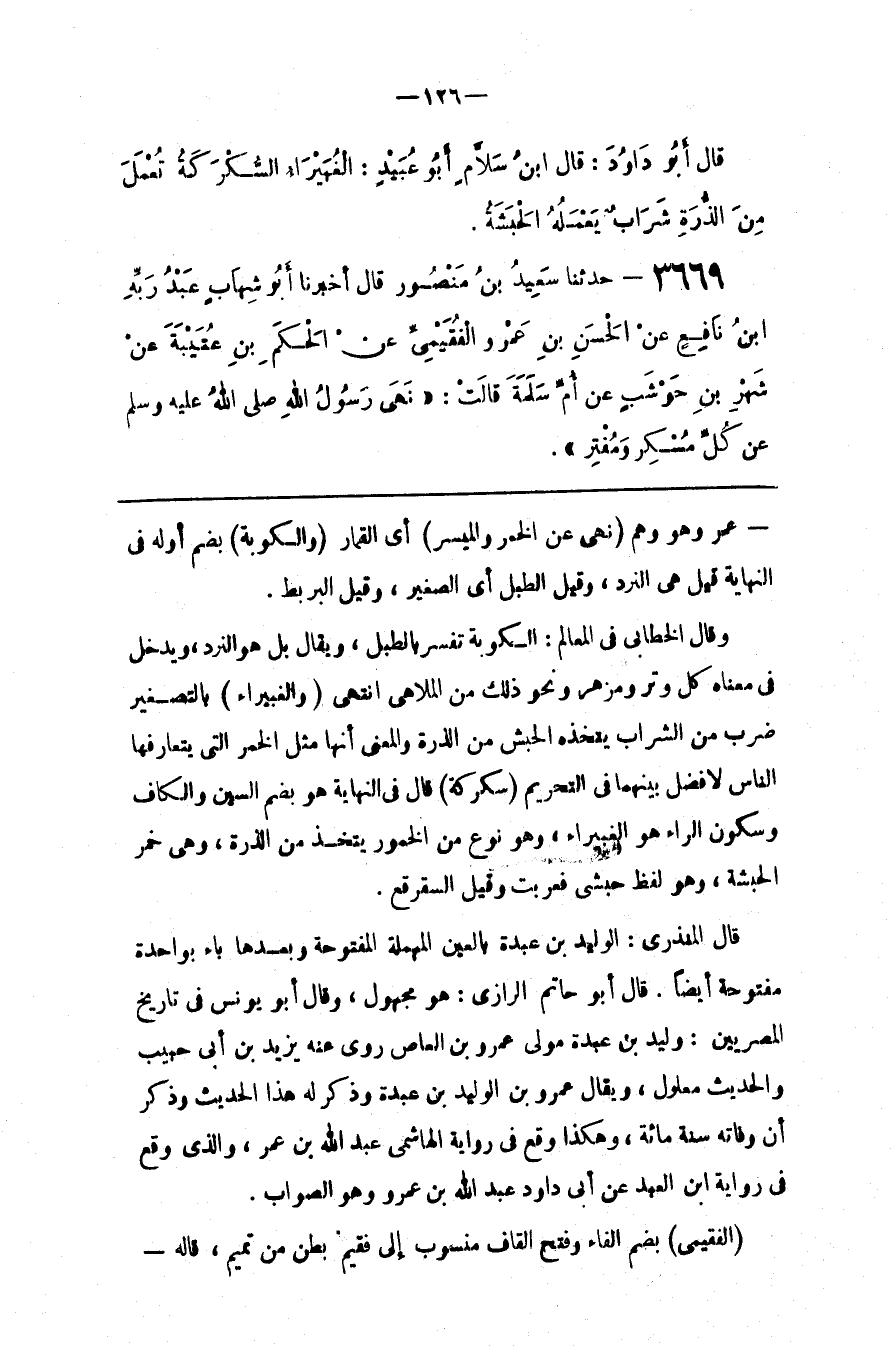 —١٢٦—
قال أَبُو دَاوُدَ : قال ابنُ سَلاَّمٍ أَبُو عُبَيْدٍ : الْغُبَيْرَاءُ السُّكْرَكَةُ تُعْمَلُ
مِنَ الذُّرَةِ شَرَابٌ يَعْمَلُهُ الْحَبَشَةُ .
٣٦٦٩ – حدثنا سَعِيدُ بنُ مَنْصُورٍ قال أخبرنا أَبُو شِهَابٍ عَبْدُ رَبِّهِ
ابنُ نَافِعٍ عنْ الْحَسَنِ بنِ عَمْرٍو الْفُقَيْمِيِّ عنْ الْحَكَمِ بنِ عُتَيْبَةَ عنْ
شَهْرِ بنِ حَوْشَبٍ عن أُمِّ سَلَمَةَ قالَتْ : « نَهَى رَسُولُ اللهِ صلى اللهُ عليه وسلم
عن كُلِّ مُسْكِرٍ وَمُفْتِرٍ » .
— عمر وهو وهم (نهى عن الخمر والميسر) أى القمار (والكوبة) بضم أوله فى
النهاية قيل هى النرد ، وقيل الطبل أى الصغير ، وقيل البربط .
وقال الخطابى فى المعالم : الكوبة تفسر بالطبل ، ويقال بل هو النرد ، ويدخل
فى معناه كل وتر ومزهر ونحو ذلك من الملاهى انتهى ( والغبيراء ) بالتصغير
ضرب من الشراب يتخذه الحبش من الذرة والمعنى أنها مثل الخمر التى يتعارفها
الناس لافضل بينهما فى التحريم (سكركة) قال فى النهاية هو بضم السين والكاف
وسكون الراء هو الغبيراء ، وهو نوع من الخمور يتخذ من الذرة ، وهى خمر
الحبشة ، وهو لفظ حبشى فعربت وقيل السقرقع .
قال المنذرى : الوليد بن عبدة بالعين المهملة المفتوحة وبعدها باء بواحدة
مفتوحة أيضاً . قال أبو حاتم الرازى : هو مجهول ، وقال أبو يونس فى تاريخ
المصريين : وليد بن عبدة مولى عمرو بن العاص روى عنه يزيد بن أبى حبيب
والحديث معلول ، ويقال عمرو بن الوليد بن عبدة وذكر له هذا الحديث وذكر
أن وفاته سنة مائة ، وهكذا وقع فى رواية الهاشمى عبد الله بن عمر ، والذى وقع
فى رواية ابن العبد عن أبى داود عبد الله بن عمرو وهو الصواب .
(الفقيمى) بضم الفاء وفتح القاف منسوب إلى فقيم بطن من تميم ، قاله —